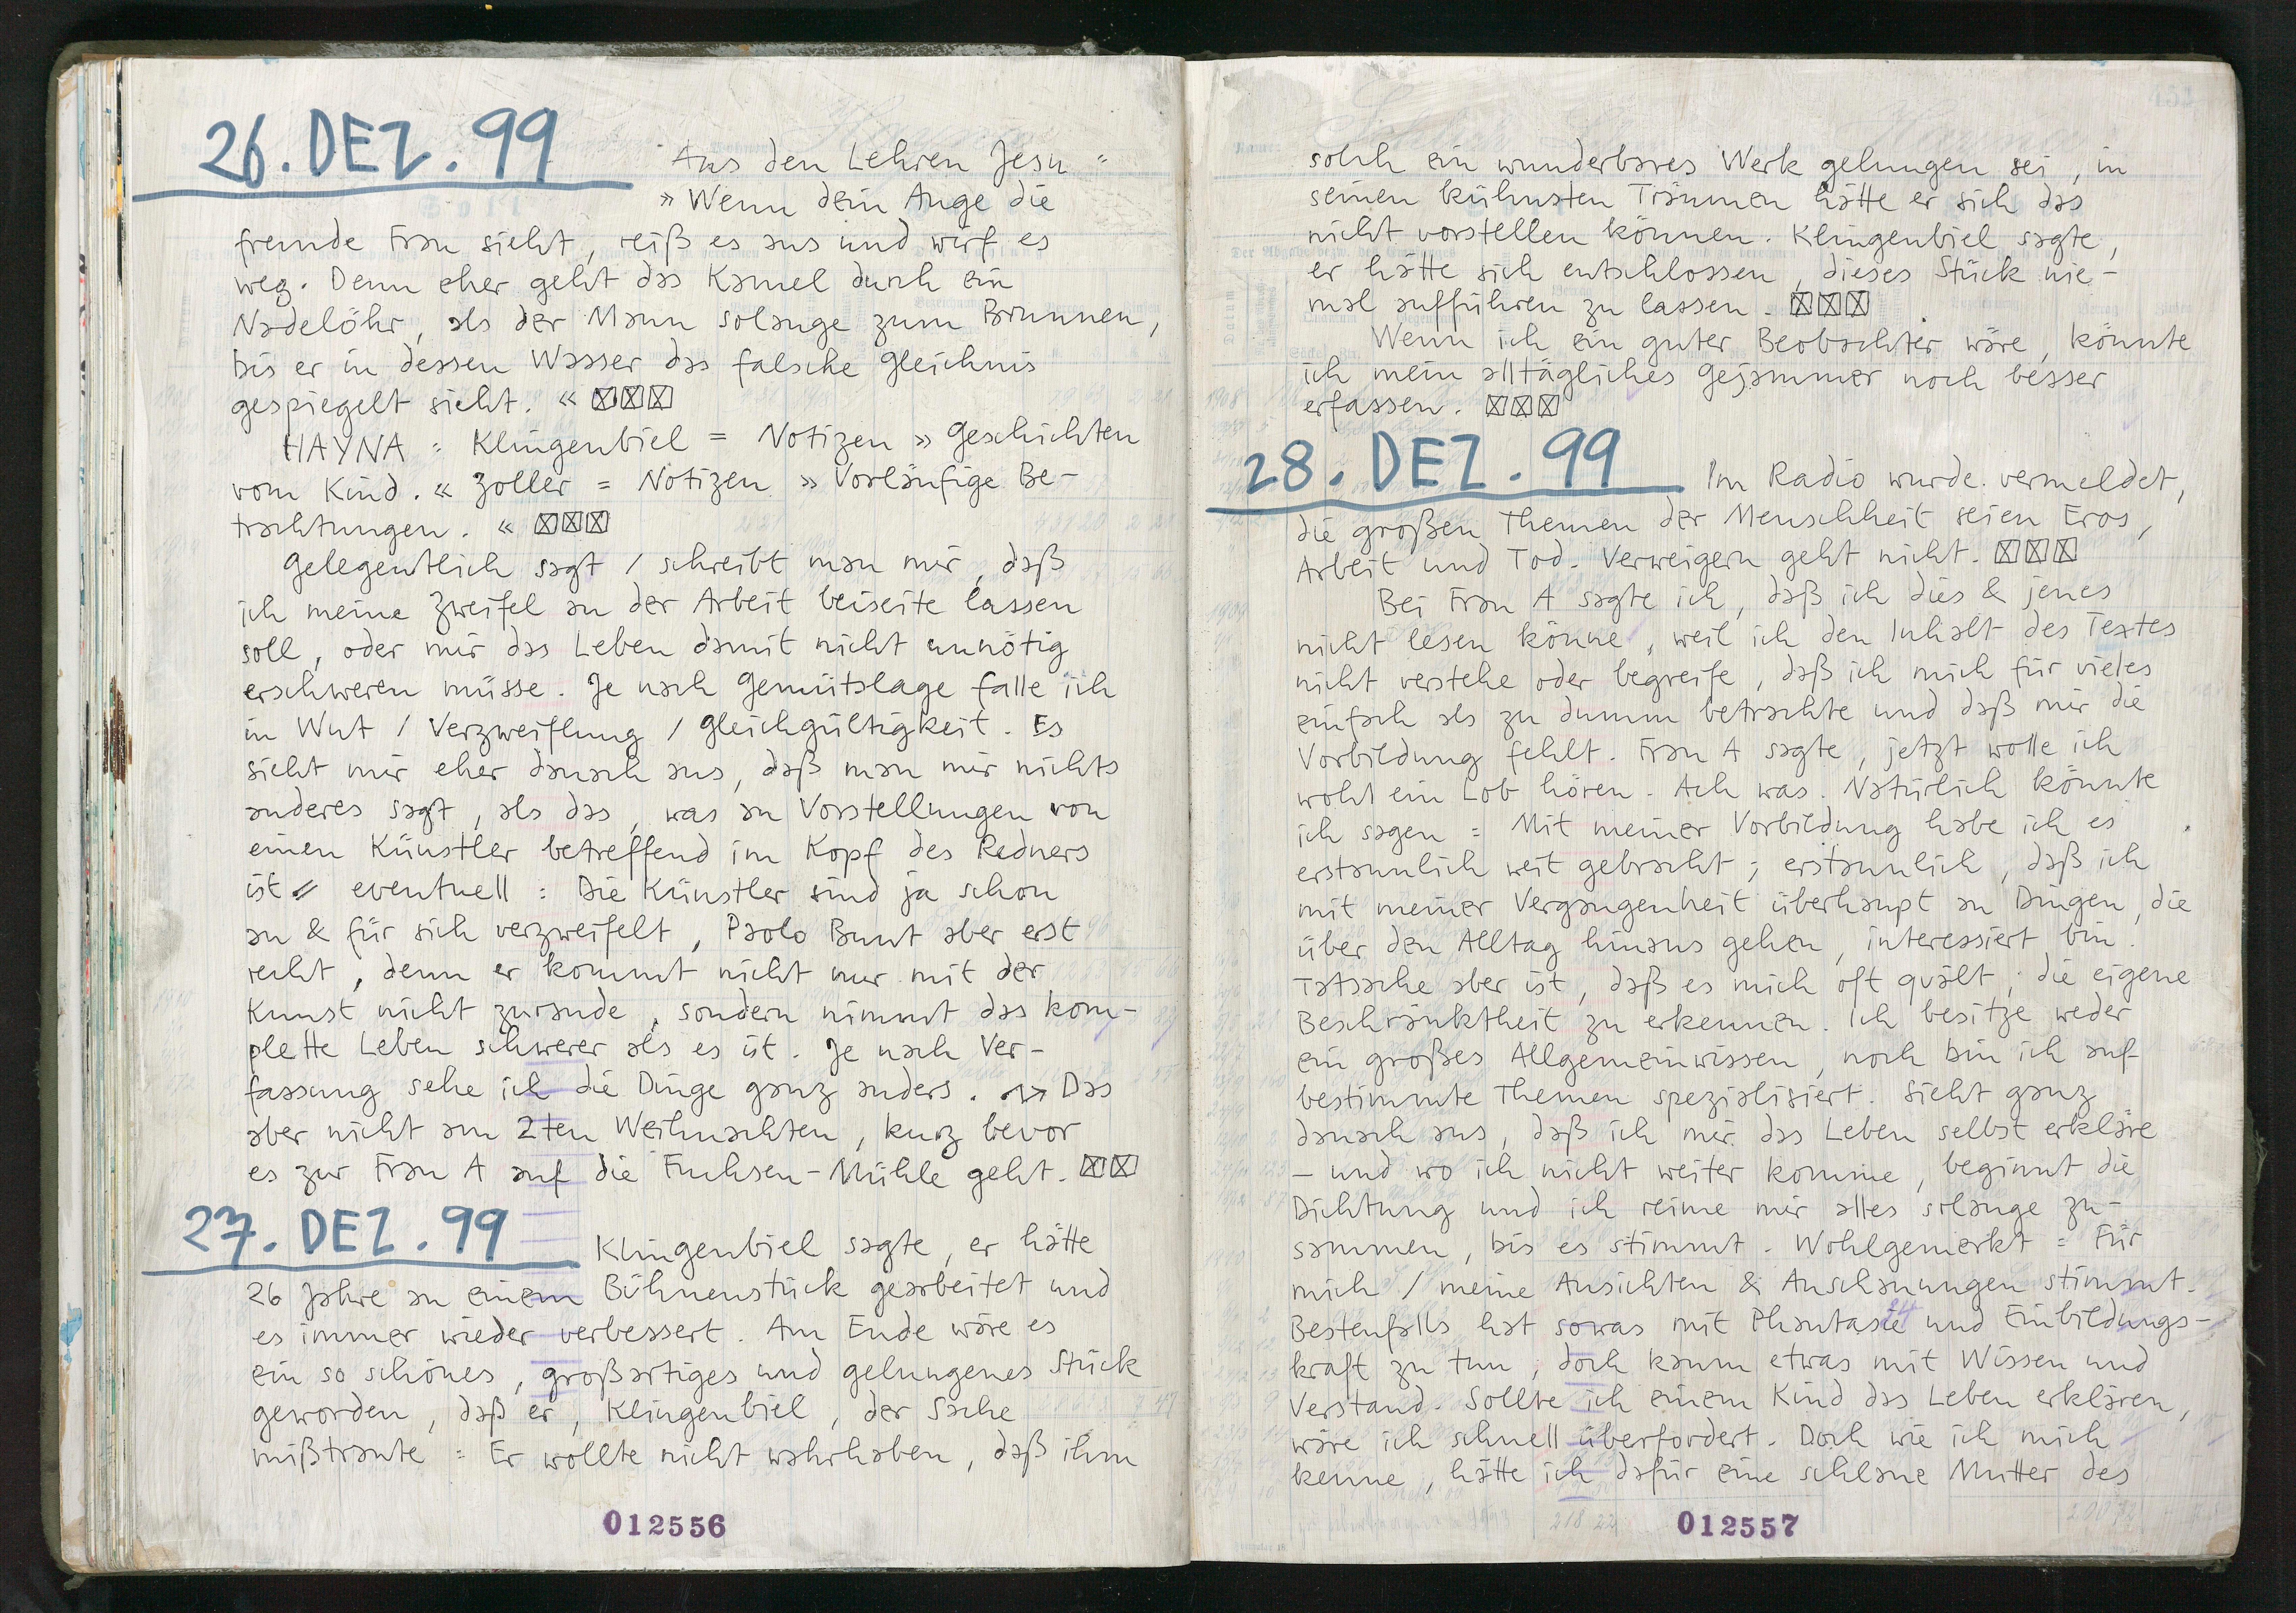 26. DEZ. 99
Aus den Lehren Jesu =
» Wenn dein Auge die
fremde Frau sieht, reiß es aus und wirf es
weg. Denn eher geht das Kamel durch ein
Nadelöhr, als der Mann solange zum Brunnen,
bis er in dessen Wasser das falsche Gleichnis
gespiegelt sieht. « ☒☒☒
HAYNA = Klingenbiel = Notizen » Geschichten
vom Kind. « Zoller = Notizen » Vorläufige Be-
trachtungen. « ☒☒☒
Gelegentlich sagt / schreibt man mir, daß
ich meine Zweifel an der Arbeit beiseite lassen
soll, oder mir das Leben damit nicht unnötig
erschweren müsse. Je nach Gemütslage falle ich
in Wut / Verzweiflung / Gleichgültigkeit. Es
sieht mir eher danach aus, daß man mir nichts
anderes sagt, als das, was an Vorstellungen von
einen Künstler betreffend im Kopf des Redners
ist // eventuell : Die Künstler sind ja schon
an & für sich verzweifelt, Paolo Bunt aber erst
recht, denn er kommt nicht nur mit der
Kunst nicht zurande, sondern nimmt das kom-
plette Leben schwerer als es ist. Je nach Ver-
fassung sehe ich die Dinge ganz anders. Das
aber nicht am 2ten Weihnachten, kurz bevor
es zur Frau A auf die Fuchsen-Mühle geht. ☒☒
27. DEZ. 99
Klingenbiel sagte, er hätte
26 Jahre an einem Bühnenstück gearbeitet und
es immer wieder verbessert. Am Ende wäre es
ein so schönes, großartiges und gelungenes Stück
geworden, daß er, Klingenbiel, der Sache
mißtraute = Er wollte nicht wahrhaben, daß ihm
012556
solch ein wunderbares Werk gelungen sei, in
seinen kühnsten Träumen hätte er sich das
nicht vorstellen können. Klingenbiel sagte,
er hätte sich entschlossen, dieses Stück nie-
mal aufführen zu lassen. ☒☒☒
Wenn ich ein guter Beobachter wäre, könnte
ich mein alltägliches Gejammer noch besser
erfassen. ☒☒☒
28. DEZ. 99
Im Radio wurde vermeldet,
die großen Themen der Menschheit seien Eros,
Arbeit und Tod. Verweigern geht nicht. ☒☒☒
Bei Frau A sagte ich, daß ich dies & jenes
nicht lesen könne, weil ich den Inhalt des Textes
nicht verstehe oder begreife, daß ich mich für vieles
einfach als zu dumm betrachte und daß mir die
Vorbildung fehlt. Frau A sagte, jetzt wolle ich
wohl ein Lob hören. Ach was. Natürlich könnte
ich sagen = Mit meiner Vorbildung habe ich es
erstaunlich weit gebracht; erstaunlich, daß ich
mit meiner Vergangenheit überhaupt an Dingen, die
über den Alltag hinaus gehen, interessiert bin.
Tatsache aber ist, daß es mich oft quält, die eigene
Beschränktheit zu erkennen. Ich besitze weder
ein großes Allgemeinwissen, noch bin ich auf
bestimmte Themen spezialisiert. Sieht ganz
danach aus, daß ich mir das Leben selbst erkläre
– und wo ich nicht weiter komme, beginnt die
Dichtung und ich reime mir alles solange zu-
sammen, bis es stimmt. Wohlgemerkt = Für
mich / meine Ansichten & Anschauungen stimmt.
Bestenfalls hat sowas mit Phantasie und Einbildungs-
kraft zu tun, doch kaum etwas mit Wissen und
Verstand. Sollte ich einem Kind das Leben erklären,
wäre ich schnell überfordert. Doch wie ich mich
kenne, hätte ich dafür eine schlaue Mutter des
012557